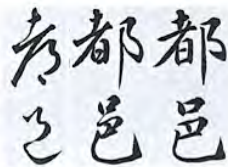 都邑
都邑
都邑